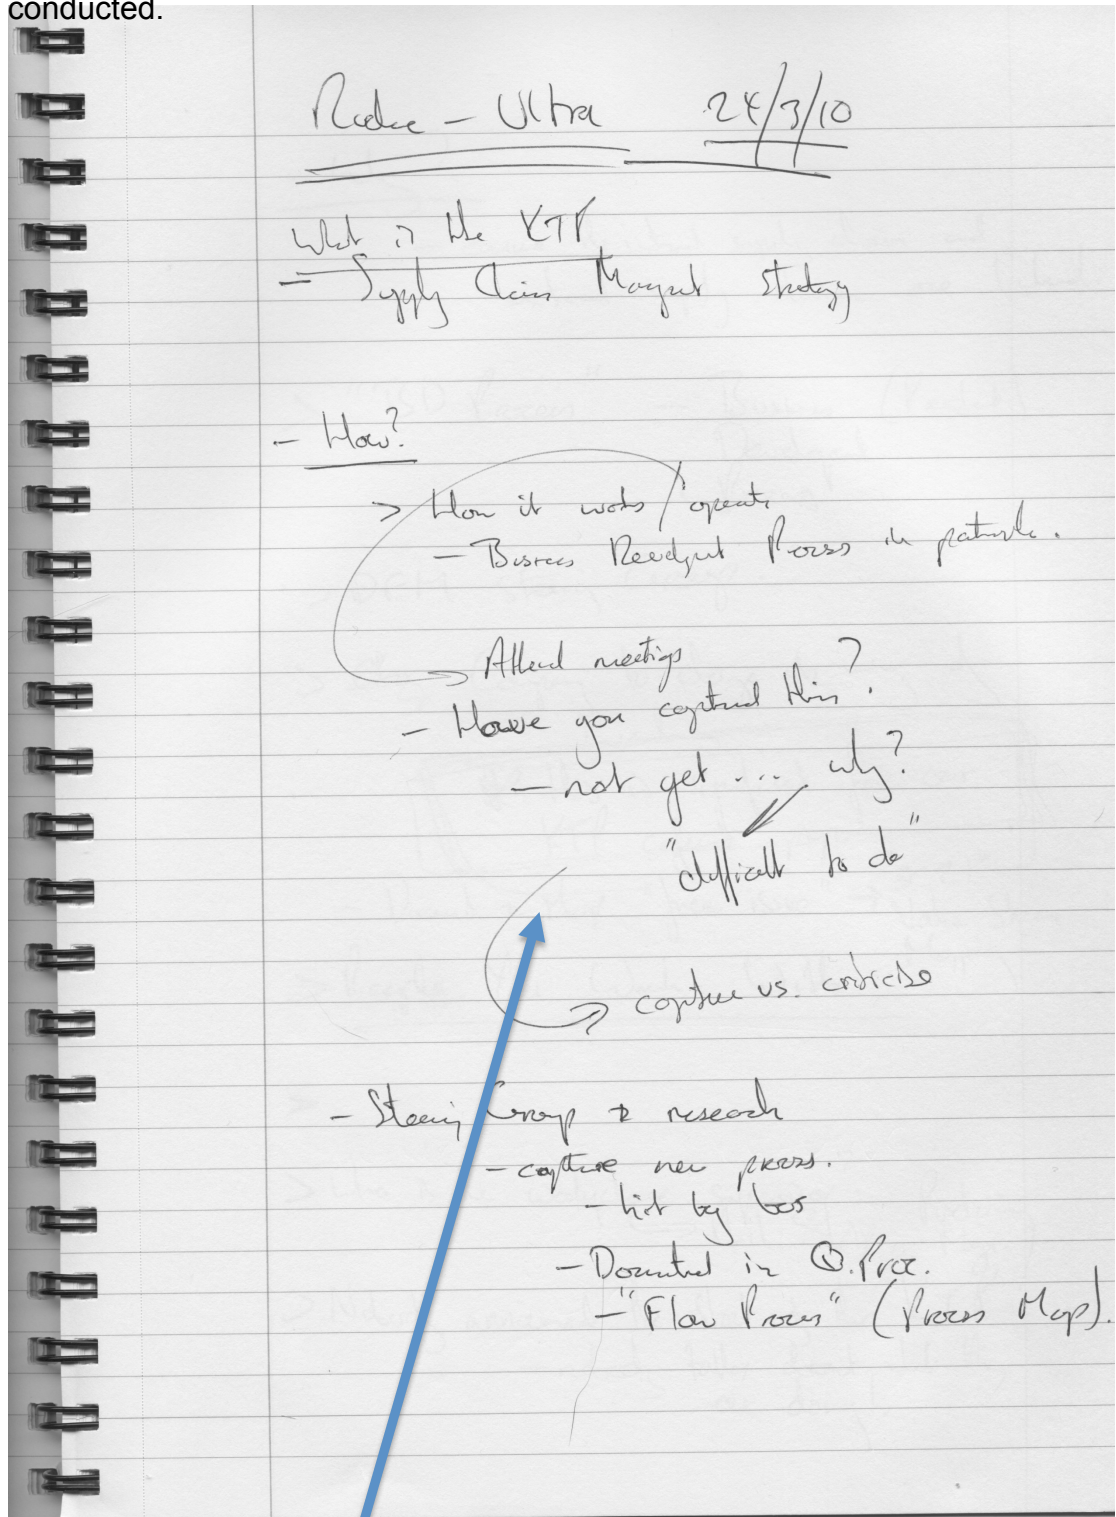 conducted.
- Ultra 24/3/10
What is the KTP
- Supply Chain strategy
- How?
> How it works / operates
- Business Process in particular.
Attend meetings
- Have you captured this?
- not yet .... why?
"difficult to do"
capture vs. criticise
- Steering Group & research
- capture new process.
- hit by bus
- Documented in Q. Proc.
- "Flow Process" (Process Map).